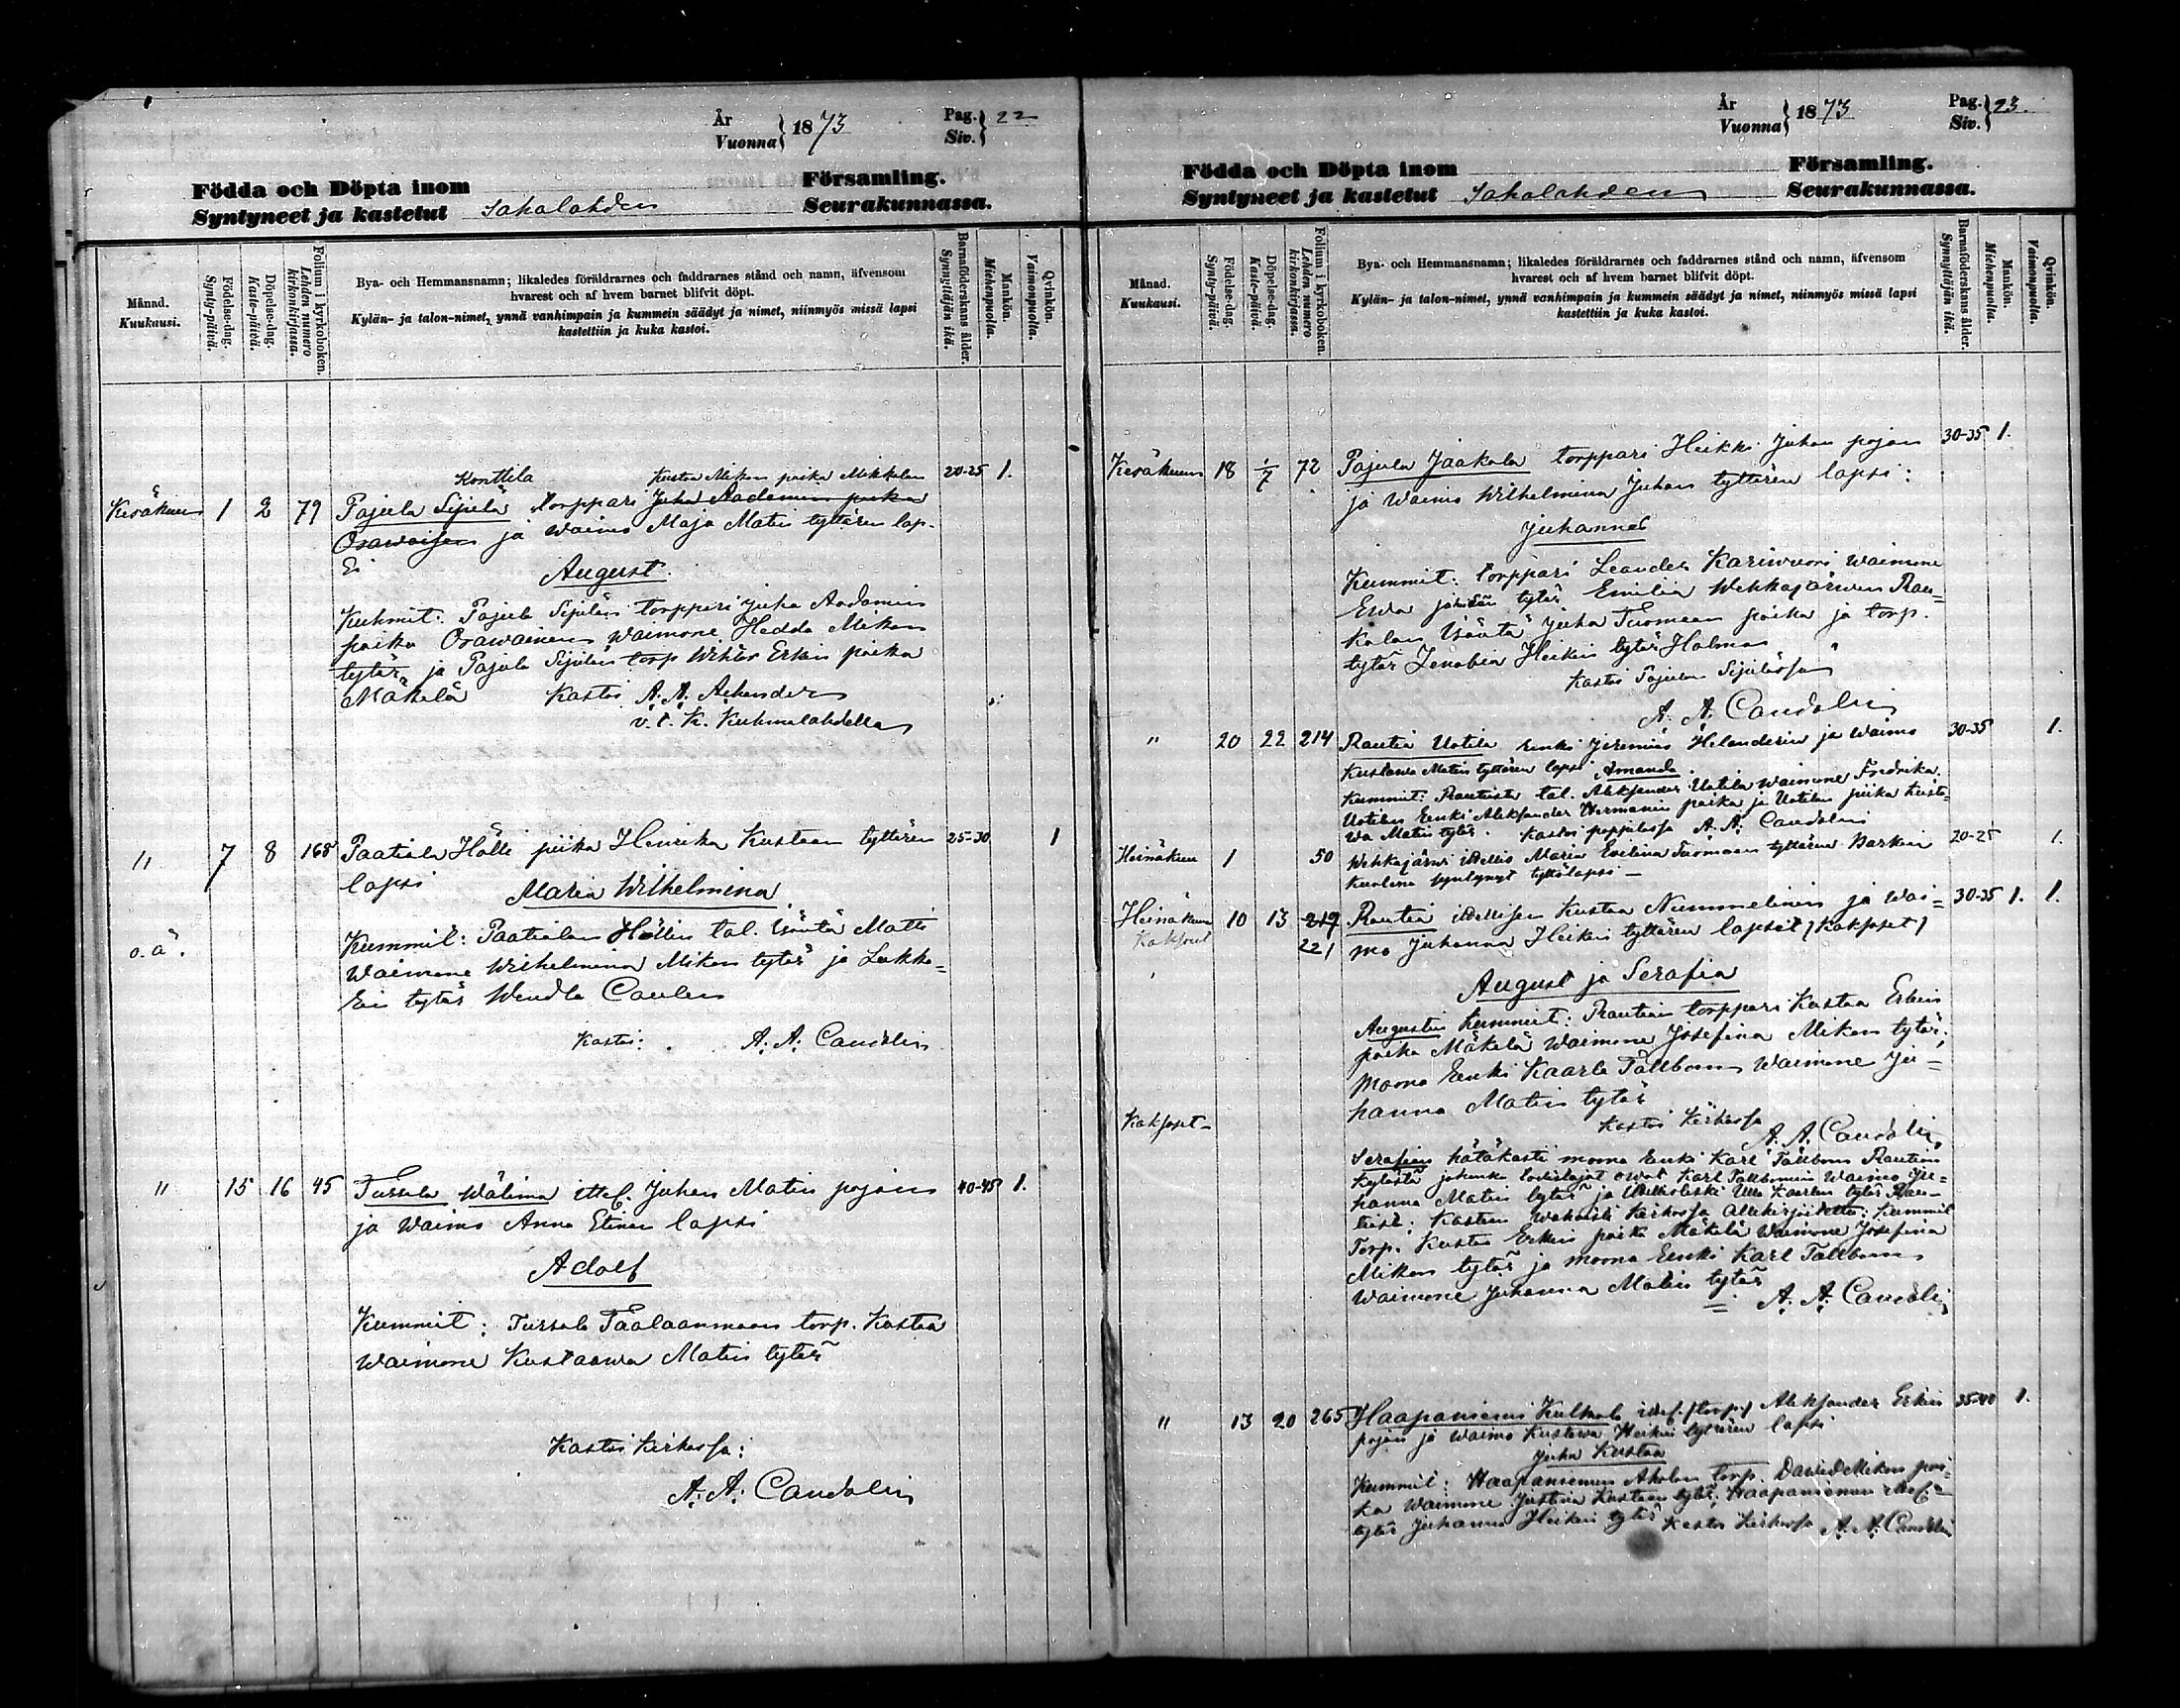 År
Vuonna } 1873
Pag.
Siv. } 22
Födda och Döpta inom Församling.
Syntyneet ja kastetut Sahalahden Seurakunnassa.
Månad.
Kuukausi.
Födelse-dag.
Synty-päivä.
Döpelse-dag.
Kaste-päivä.
Folium i kyrkoboken.
Lehden numero kirkonkirjassa.
Bya- och Hemmansnamn; likaledes föräldrarnes och faddrarnes stånd och namn, äfvensom
hvarest och af hvem barnet blifvit döpt.
Kylän- ja talon-nimet, ynnä vanhimpain ja kummein säädyt ja nimet, niinmyös missä lapsi
kastettiin ja kuka kastoi.
Barnaföderskans ålder.
Synnyttäjän ikä.
Mankön.
Miehenpuolta.
Qvinkön.
Vaimonpuolta.
Konttila Kustaa Mikon poika Mikkolan 20-25 1.
Kesäkuun 1 2 79 Pajula Sipilä torppari Juha Aadamin poika
Orawaisen ja waimo Maja Matin tyttären lap-
si
August.
Kuhmit: Pajula Sipilän torppari Juha Aadamin
poika Orawainen waimone Hedda Mikon
tytär, ja Pajula Sipilän torp Wihtor Erkin poika
Mäkelä Kastoi A. A.
v. t. K. Kuhmalahdella
" 7 8 168 Paatiala Hölli piika Henrika Kustaan tyttären 25-30 1
lapsi Maria Wilhelmina
o. ä. Kummit: Paatialan Höllin tal. Isäntä Matti
waimone Wilhelmina Mikon tytär ja Lukko-
sin tytär Wendla
Kastoi: A. A. Candolin
" 15 16 45 Tursola Wälimaa itsell. Juhan Matin pojan 40-45 1.
ja waimo Anna Stiina lapsi
Adolf
Kummit: Tursola Taalaanmaan torp. Kustaa
waimone Kustaawa Matin tytär
Kastoi kirkossa:
A. A. Candolin
År
Vuonna } 1873
Pag.
Siv. } 23.
Födda och Döpta inom Församling.
Syntyneet ja kastetut Sahalahden Seurakunnassa.
Månad.
Kuukausi.
Födelse-dag.
Synty-päivä.
Döpelse-dag.
Kaste-päivä.
Folium i kyrkoboken.
Lehden numero kirkonkirjassa.
Bya- och Hemmansnamn; likaledes föräldrarnes och faddrarnes stånd och namn, äfvensom
hvarest och af hvem barnet blifvit döpt.
Kylän- ja talon-nimet, ynnä vanhimpain ja kummein säädyt ja nimet, niinmyös missä lapsi
kastettiin ja kuka kastoi.
Barnaföderskans ålder.
Synnyttäjän ikä.
Mankön.
Miehenpuolta.
Qvinkön.
Vaimonpuolta.
Kesäkuun 18 1/7 72 Pajula Jaakola torppari Heikki Juhan pojan 30-35 1.
ja waimo Wilhelmina Juhan tyttären lapsi:
Juhannes
Kummit: torppari Leander Kariwuori waimone
Ewa tytär Emilia Wehkajärwen Rau-
kolan Isäntä Juha Tuomaan poika ja torp.
tytär Zenobia Heikin tytär Holma
Kastoi Pajulan Sipilässä
A. A. Candolin
" 20 22 214 Rautia Uotila Jeremias Helanderin ja waimo 30-35 1.
Kustaawa Matin tyttären lapsi Amanda.
Kummit: Rautista tal. Aleksander Uotila waimone Fredrika.
Uotilan Renki Aleksander Hermanin poika ja Uotilan piika Kusta-
wa Matin tytär. Kastoi pappilassa A. A. Candolin
Heinäkuu 1 50 Wehkajärwi itsellis Maria Ewelina Tuomaan tyttären 20-25 1.
kuolena syntynyt tyttölapsi —
Heinäkuu 10 13 219 Rautia itsellisen Kustaa Nummelinin ja wai- 30-35 1. 1.
Kaksoset 221 mo Juhanna Heikin tyttären lapset (kaksoset)
August ja Serafia
Augustin kummit: Rautian torppari Kustaa Erkin
poika Mäkelä waimone Josefina Mikon tytär;
muona Renki Kaarle Tallbom waimone Ju-
hanna Matin tytär
Kastoi kirkossa
A. A. Candolin
Kaksoset — Serafian hätäkasti muona Renki Karl Tallbom Rautian
kylästä johonka todistajat owat Karl Tallbomin waimo Ju-
hanna Matin tytär ja Ulla Kaarlen tytär Rau-
tiast. Kasteen wahwisti kirkossa allekirjoitettu: kummit
Torp. Kustaa Erkin poika Mäkelä waimone Josefina
Mikon tytär ja muona Renki Karl Tallbom
waimone Juhanna Matin tytär
A. A. Candolin
" 13 20 265 Haapaniemi Kulkkola itsel. (torp.) Aleksander Erkin 35-40 1.
pojan ja waimo Kustawa Heikin tyttären lapsi
Juha Kustaa
Kummit: Haapaniemen Aholan torp. Dawid Mikon poi-
ka waimone Justina Kustaan tytär, Haapaniemen
tytär Juhanna Heikin tytär Kastoi kirkossa A. A. Candolin